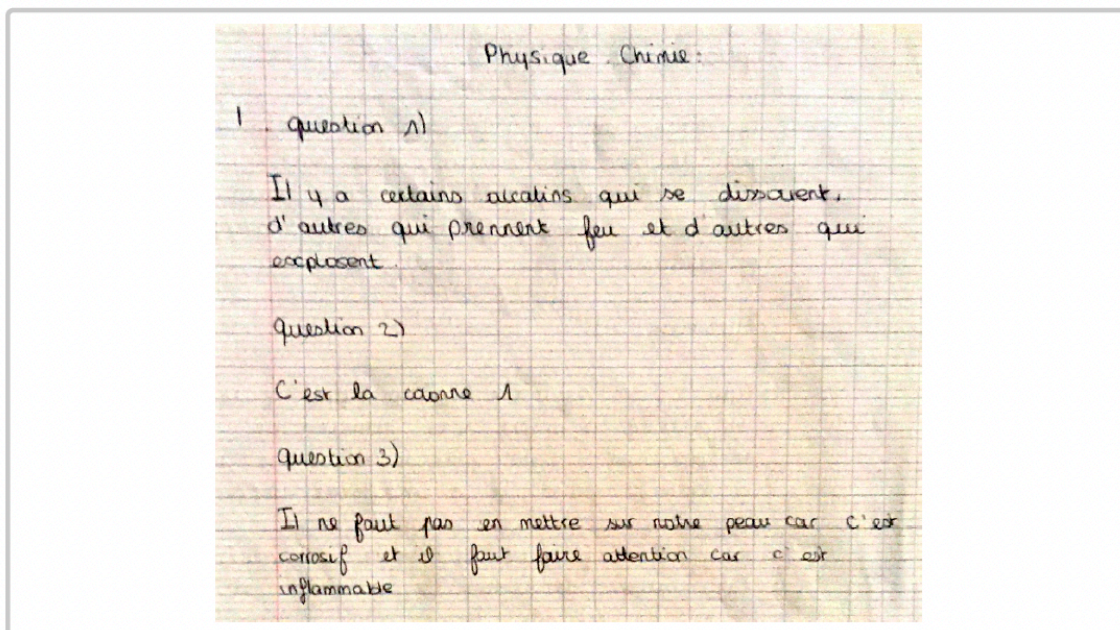 Physique Chimie:
1. question 1)
Il y a certains alcalins qui se dissolvent,
d'autres qui prennent feu et d'autres qui
explosent.
question 2)
C'est la colonne 1
question 3)
Il ne faut pas en mettre sur notre peau car c'est
corrosif et il faut faire attention car c'est
inflammable